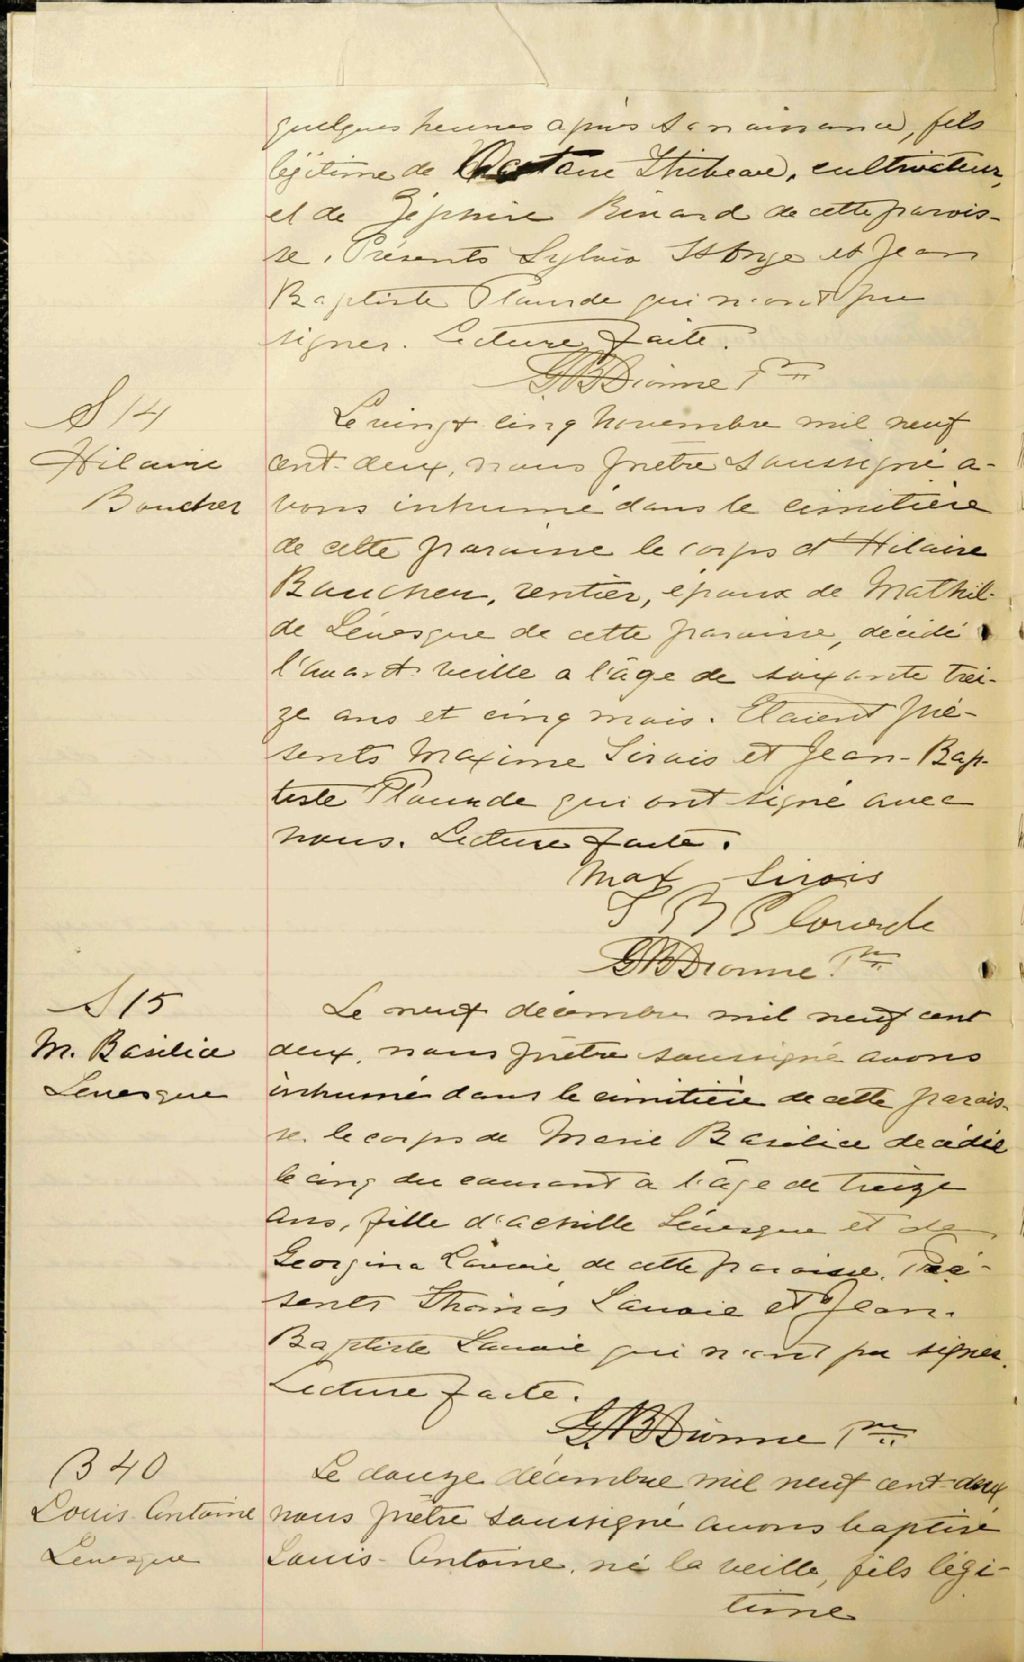 quelques heures après sa naissance, fils
légitime de Octave Thibeau, cultivateur,
et de Zéphire Binard de cette parois-
se. Présents Sylvio et Jean
Baptiste Plourde qui n'ont pu
signer. Lecture faite.
G B Dionne Ptre
S 14
Hilaire
Boucher
Le vingt cinq novembre mil neuf
cent-deux, nous prêtre soussigné a-
vons inhumé dans le cimitière
de cette paroisse le corps d'Hilaire
Boucher, rentier, époux de Mathil-
de Lévesque de cette paroisse, décédé
l'avant-veille a l'âge de soixante trei-
ze ans et cinq mois. Etaient pré-
sents Maxime Sirois et Jean-Bap-
tiste Plourde qui ont signé avec
nous. Lecture faite.
Max Sirois
J B Plourde
G B Dionne Ptre
S 15
M. Basilice
Levesque
Le neuf décembre mil neuf cent
deux, nous prêtre soussigné avons
inhumé dans le cimitière de cette parois-
se le corps de Marie Basilice décédée
le cinq du courant a l'âge de treize
ans, fille d'achille Lévesque et de
Georgina Lavoie de cette paroisse. Pré-
sents Thomas Lavoie et Jean-
Baptiste Lavoie qui n'ont pu signer.
Lecture faite.
G B Dionne Ptre
B 40
Louis-Antoine
Levesque
Le douze décembre mil neuf cent-deux
nous prêtre soussigné avons baptisé
Louis-Antoine, né la veille, fils légi-
time